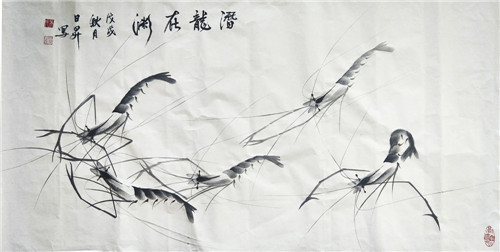 潛龍在渊
戊戌
秋月
日昇写